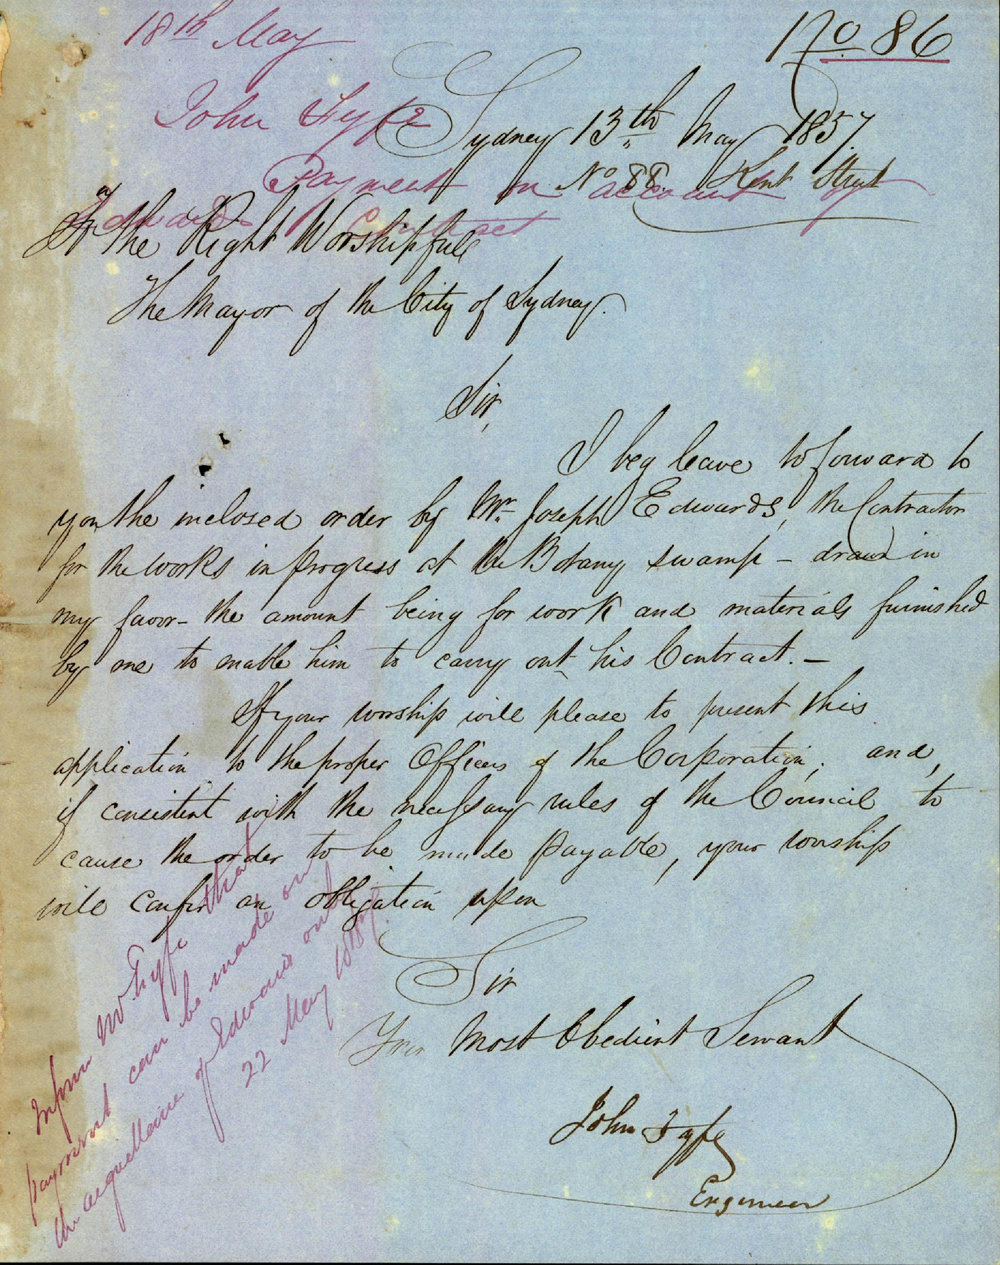 18th May
No 86
John Fyfe
Payment on account of
Edwards Contract
Sydney 13th May 1857.
No 88. Kent Street
To the Right Worshipfull
The Mayor of the City of Sydney.
Sir,
I beg leave to forward to
you the inclosed order by Mr. Joseph Edwards, the Contractor
for the works in progress at the Botany swamp – drawn in
my favor – the amount being for work and materials furnished
by me to enable him to carry out his Contract. –
If your worship will please to present this
application to the proper Officers of the Corporation; and,
if consistent with the necessary rules of the Council to
cause the order to be made payable, your worship
will confer an obligation upon
Sir
Your Most Obedient Servant
John Fyfe
Engineer
Inform Mr Fyfe that
payment can be made on
the of Edwards only
22 May 1857